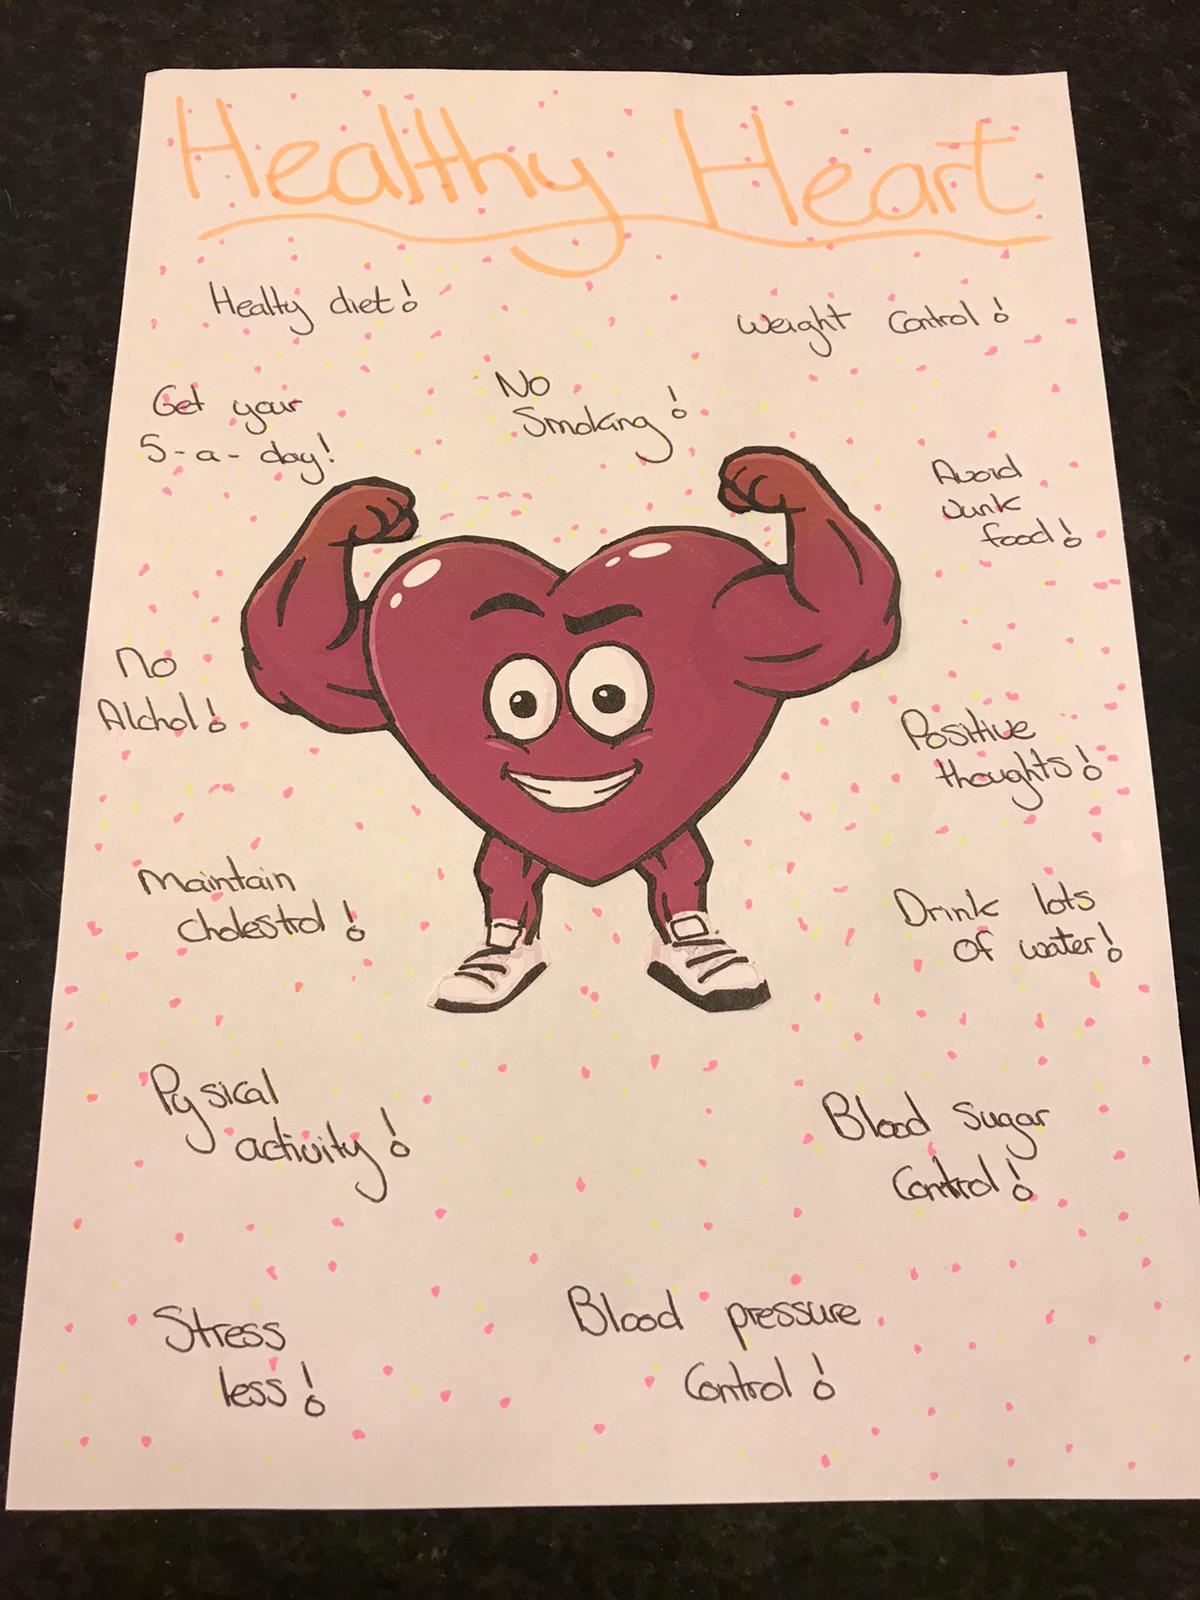 Healthy Heart
Healty diet!
Weight Control!
Get your
5-a-day!
No
Smoking!
Avoid
Junk
food!
No
Alchol!
Positive
thoughts!
Maintain
cholestrol!
Drink lots
of water!
Pysical
activity!
Blood Sugar
Control!
Stress
less!
Blood pressure
Control!